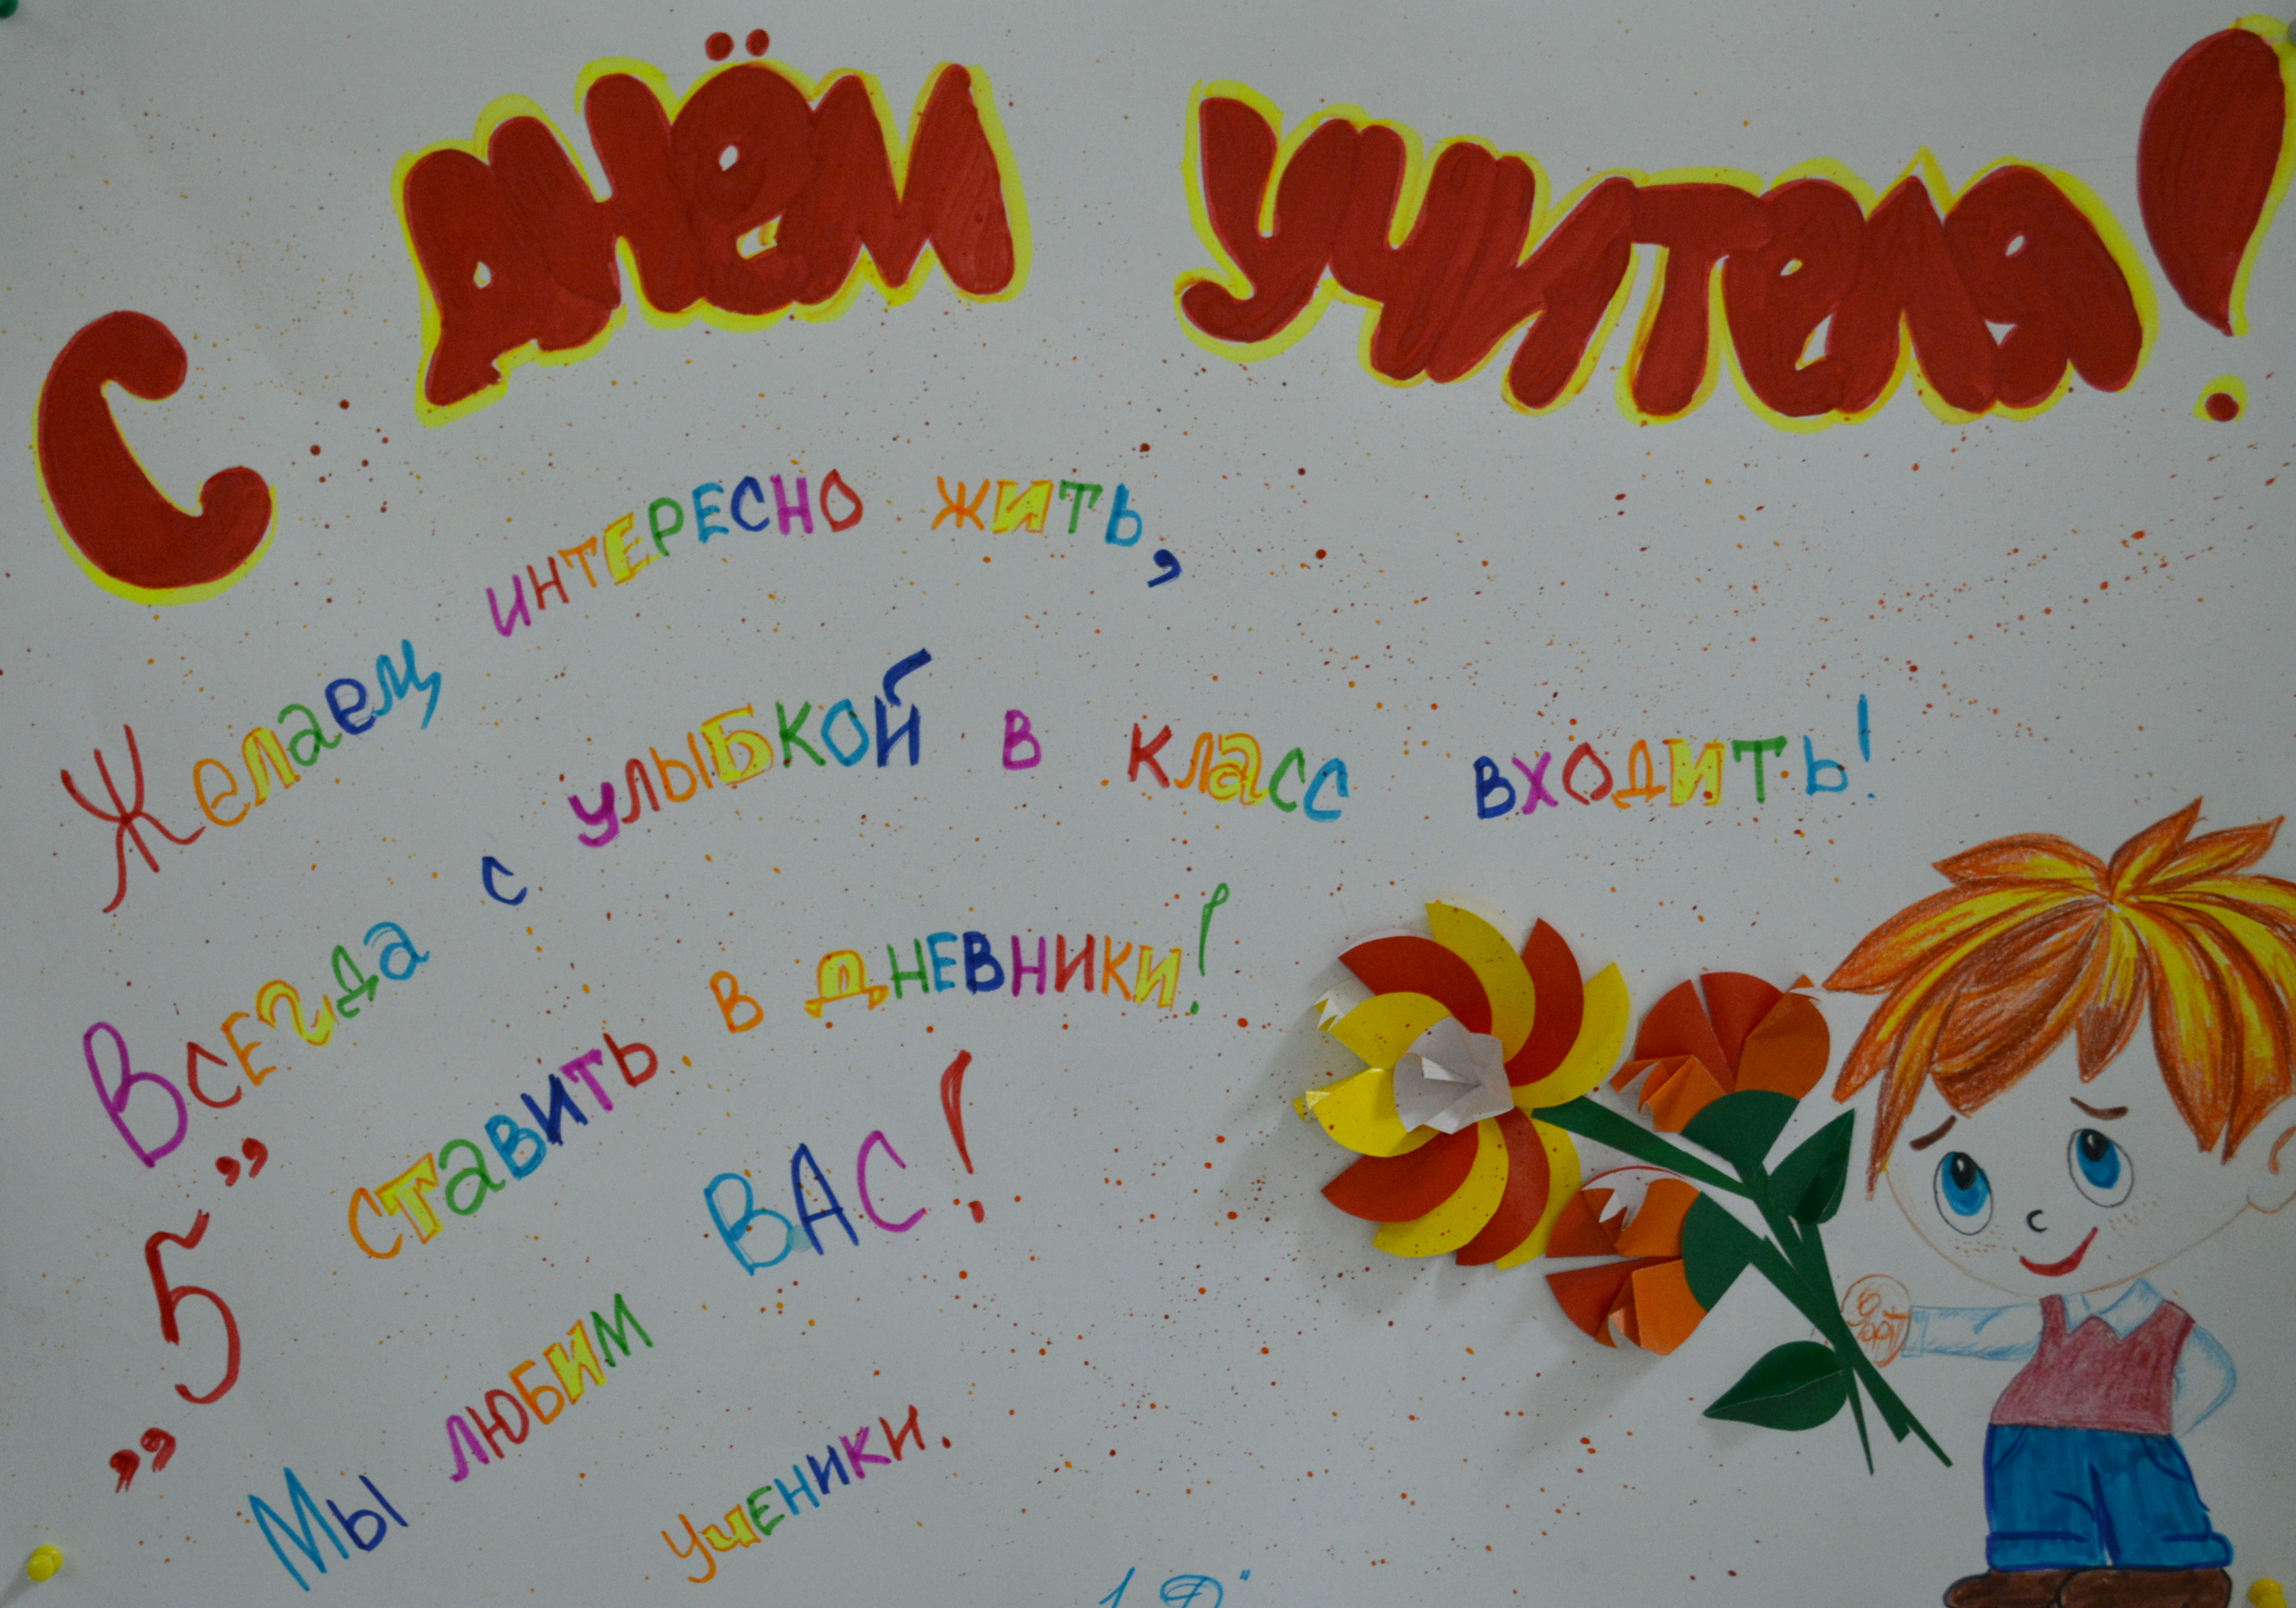 С днём учителя!
Желаем интересно жить,
Всегда с улыбкой в класс входить!
„5” ставить в дневники!
Мы любим ВАС!
ученики.